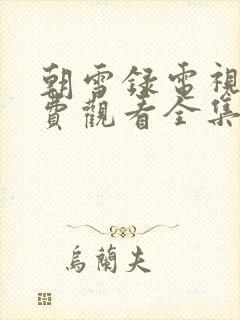 朝雪録電視
費觀看全集
烏蘭夫